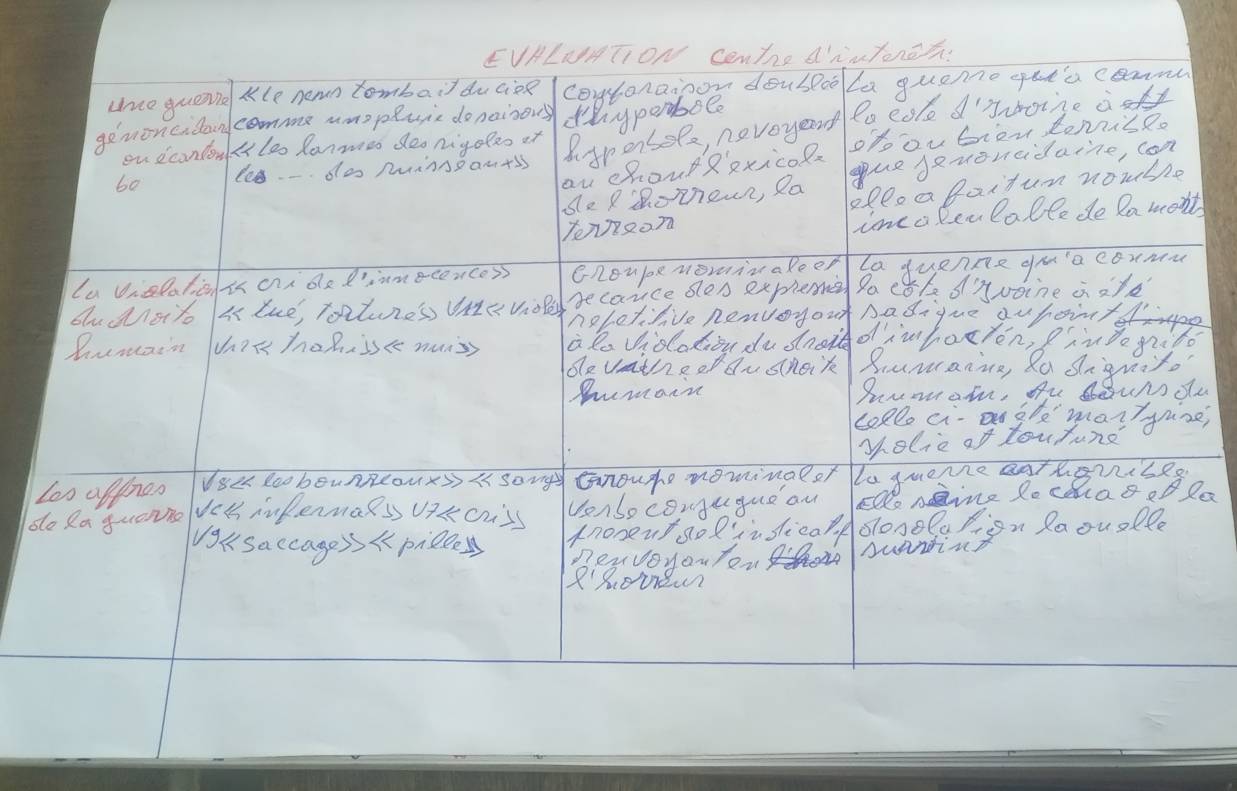 EVALUATION centre d'intérêt:
une guerre
génoncidaire
ou écatom
be
<<le sens tombait du ciel
comme une pluie de saison>>
<<les larmes des rigoles et
les --- des ruisseaux>>
comparaison doublée
d'hyperbole
hyperbole, revoyant
au chant l'exicale
de l'horreur, la
terreor
la guerre qui a connu
la cote d'ivoire à
été au bien terrible
que genoncidaire, car
elle a fait un nombre
incalculable de la morts
La violation
du droite
humain
<<cri de l'innocence>>
<<tué, torturés>> V11<<violés
V12<<trahis>><<nuis>>
Groupe nominale et
des expression
repetitive renvoyant
à la violation du droite
de vaivre et du droite
humain
la guerre qui a connu
la cote d'ivoire à été
sadique au point
d'impacter, l'integrité
humaine, la dignité
humain. Au cours du
celle ci- a été martyrisé,
spolie et touturé
Les affres
de la guerre
V8<<les bourreaux>> <<sang>>
V6<<infernal>> V7<<cri>>
V9<<saccage>> <<pille>>
Groupe nominal et
verbe conjugué au
present de l'indicatif
renvoyant en
l'horreur
la guerre est horrible
Elle sème le chao et la
desolation la ou elle
survint